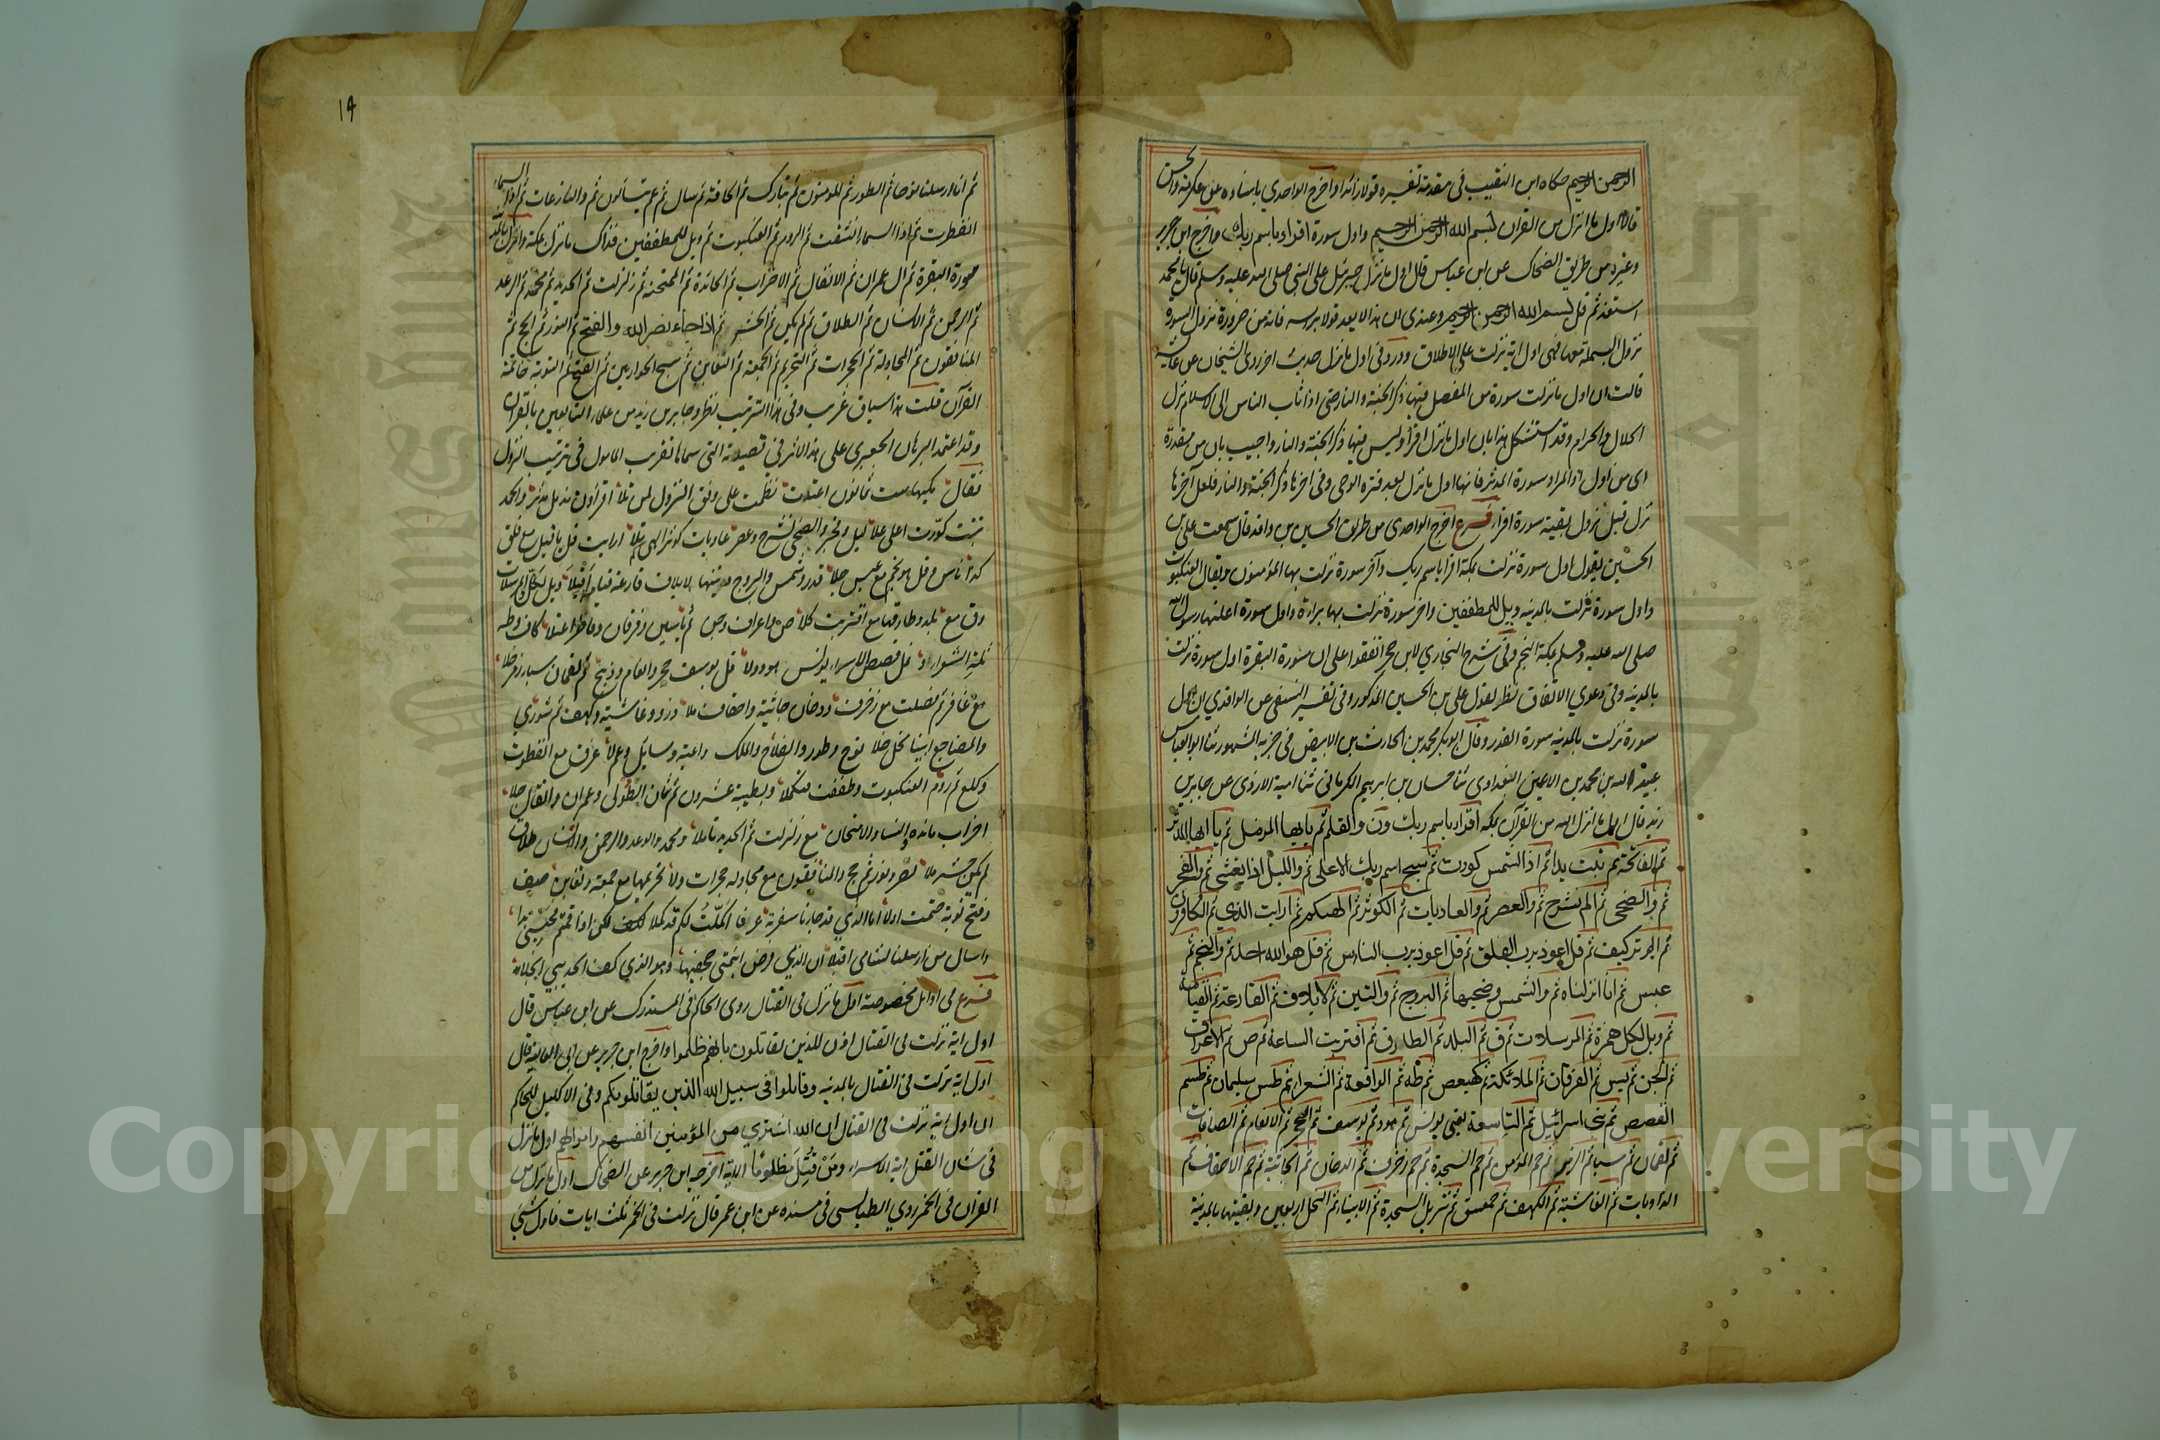 الرحمن الرحيم حكاه ابن النقيب في مقدمة تفسيره قولا زائدا واخرج الواحدي باسناده عن عكرمة والحسن
قالا اول ما انزل من القران بسم الله الرحمن الرحيم واول سورة اقرء باسم ربك واخرج ابن جرير
وغيره من طريق الضحاك عن ابن عباس قال اول ما نزل جبرئيل على النبي صلى الله عليه وسلم قال يا محمد
استعذ ثم قل بسم الله الرحمن الرحيم وعندي ان هذا لا يعد قولا براسه فانه من ضرورة نزول السورة
نزول البسملة معها فهي اول اية نزلت على الاطلاق وورد في اول ما نزل حديث اخر روى الشيخان عن عائشة
قالت ان اول ما نزلت سورة من المفصل فيها ذكر الجنة والنار حتى اذا ثاب الناس الى الاسلام نزل
الحلال والحرام وقد استشكل هذا بان اول ما نزل اقرأ وليس فيها ذكر الجنة والنار واجيب بان من مقدرة
اى من اول او المراد سورة المدثر فانها اول ما نزل بعد فترة الوحى وفي اخرها ذكر الجنة والنار فلعل آخرها
نزل قبل نزول بقية سورة اقراء فرع اخرج الواحدى من طريق الحسين بن واقد قال سمعت على بن
الحسين يقول اول سورة نزلت بمكة اقرا باسم ربك وآخر سورة نزلت بها المؤمنون ويقال العنكبوت
واول سورة نزلت بالمدينه ويل للمطففين واخر سورة نزلت بها براءة واول سورة اعلنها رسول الله
صلى الله عليه وسلم بمكة النجم وفي شرح البخاري لابن حجر اتفقوا على ان سورة البقرة اول سورة نزلت
بالمدينه وفي دعوي الاتفاق نظر لقول على بن الحسين المذكور وفي تفسير النسفي عن الواقدي ان اول
سورة نزلت بالمدينه سورة القدر وقال ابو بكر محمد بن الحارث بن الابيض في جزيه المشهور ثنا ابو العباس
عبيد الله بن محمد بن اعين البغدادى ثنا حسان بن ابرهيم الكرماني ثنا امية الازدى عن جابر بن
زيد قال اول ما انزل الله من القرآن بمكه اقرأ باسم ربك ون والقلم ثم يا ايها المزمل ثم يا ايها المدثر
ثم الفاتحة ثم تبت يدا ثم اذا الشمس كورت ثم سبح اسم ربك الاعلى ثم والليل اذا يغشى ثم والفجر
ثم والضحى ثم الم نشرح ثم والعصر ثم والعاديات ثم الكوثر ثم الهيكم ثم ارايت الذي ثم الكافرون
ثم الم تر كيف ثم قل اعوذ برب الفلق ثم قل اعوذ برب الناس ثم قل هو الله احد ثم والنجم ثم
عبس ثم انا انزلناه ثم والشمس وضحيها ثم البروج ثم والتين ثم لايلاف ثم القارعة ثم القيامة
ثم ويل لكل همزة ثم المرسلات ثم ق ثم البلد ثم الطارق ثم اقتربت الساعة ثم ص ثم الاعراف
ثم الجن ثم يس ثم الفرقان ثم الملائكة ثم كهيعص ثم طه ثم الواقعة ثم الشعراء ثم طس سليمان ثم طسم
القصص ثم بنى اسرائيل ثم التاسعة يعني يونس ثم هود ثم يوسف ثم الحجر ثم الانعام ثم الصافات
ثم لقمان ثم سبا ثم الزمر ثم حم المؤمن ثم حم السجدة ثم حم زخرف ثم الدخان ثم الجاثية ثم حم الاحقاف ثم
الذاريات ثم الغاشية ثم الكهف ثم حمعسق ثم تنزيل السجدة ثم الانبياء ثم النحل اربعين وبقيتها بالمدينة
١٩
ثم انا ارسلنا نوحا ثم الطور ثم المومنون ثم تبارك ثم الحاقة ثم سال ثم عم يتسألون ثم والنازعات ثم اذا السماء
انفطرت ثم اذا السماء انشقت ثم الروم ثم العنكبوت ثم ويل للمطففين فذاك ما نزل بمكة وانزل بالمدينة
سورة البقرة ثم ال عمران ثم الانفال ثم الاحزاب ثم المائدة ثم الممتحنة ثم زلزلت ثم الحديد ثم محمد ثم الرعد
ثم الرحمن ثم الانسان ثم الطلاق ثم لم يكن ثم الحشر ثم اذا جاء نصر الله والفتح ثم النور ثم الحج ثم
المنافقون ثم المجادلة ثم الحجرات ثم التحريم ثم الجمعة ثم التغابن ثم سبح الحواريين ثم الفتح ثم التوبة خاتمة
القرآن قلت هذا سياق غريب وفي هذا الترتيب نظر وجابر بن زيد من علماء التابعين بالقران
وقد اعتمد البرهان الجعبرى على هذا الاثر في قصيدته التي سماها تقريب المامول في ترتيب النزول
فقال مكيها ست ثمانون اعتلت نظمت على وفق النزول لمن تلا اقرا ون مزمل مدثر والحمد
تبت كورت اعلى علا ليل وفجر والضحى شرح وعصر عاديات كوثر الهى تلا ارايت قل بالفيل مع فلق
كذا ناس وقل هو نجم مع عبس جلا قدر وشمس والبروج وتينها لايلاف قارعة قيامة اقبلا ويل لكل المرسلات
وق مع بلد وطارقها مع اقتربت كلا ص واعراف وجن ثم ياسين وفرقان وفاطر اعتلا كاف وطه
ثلة الشعراء ونمل قصص الاسراء يونس هود ولا قل يوسف حجر وانعام وذبح ثم لقمان سبا زمر خلا
مع غافر ثم فصلت مع زخرف ودخان جاثية واحقاف ملا ذرو وغاشية وكهف ثم شورى
والمضاجع انبيا نحل خلا نوح وطور والفلاح والملك واعية وسايل وعم لا غرق مع انفطرت
وكدح ثم روم العنكبوت وطففت فتكملا وبطيبة عشرون ثم ثمان الطولى وعمران وانفال جلا
احزاب مائدة والنساء والامتحان مع زلزلت ثم الحديد تاملا ومحمد والرعد والرحمن والانسان طلاق
لم يكن حشر ملا نصر ونور ثم حج والمنافقون مع مجادله حجرات ولا تحريمها مع جمعة وتغابن صيف
وفتح توبة ختمت اولا اما الذي قد جاءنا سفرية عرفا اكملت لكم قد كملا لكن اذا قمتم
واسال من ارسلنا لشامى اقبلا ان الذي فرض انتمى جحفيها وهو الذي كف الحديبى انجلا
فرع في اوايل مخصوصة اول ما نزل في القتال روى الحاكم في المستدرك عن ابن عباس قال
اول اية نزلت في القتال اذن للذين يقاتلون بانهم ظلموا واخرج ابن جرير عن ابي العالية قال
اول اية نزلت في القتال بالمدينه وقاتلوا في سبيل الله الذين يقاتلونكم وفي الاكليل للحاكم
ان اول اية نزلت في القتال ان الله اشترى من المؤمنين انفسهم واموالهم اول ما نزل
في شان القتل اية الاسراء ومن قتل مظلوما الاية اخرجه ابن جرير عن الضحاك اول ما نزل من
القران في الخمر روي الطيالسى في مسنده عن ابن عمر قال نزلت في الخمر ثلث ايات فاول شيئ
Copyright © King Saud University